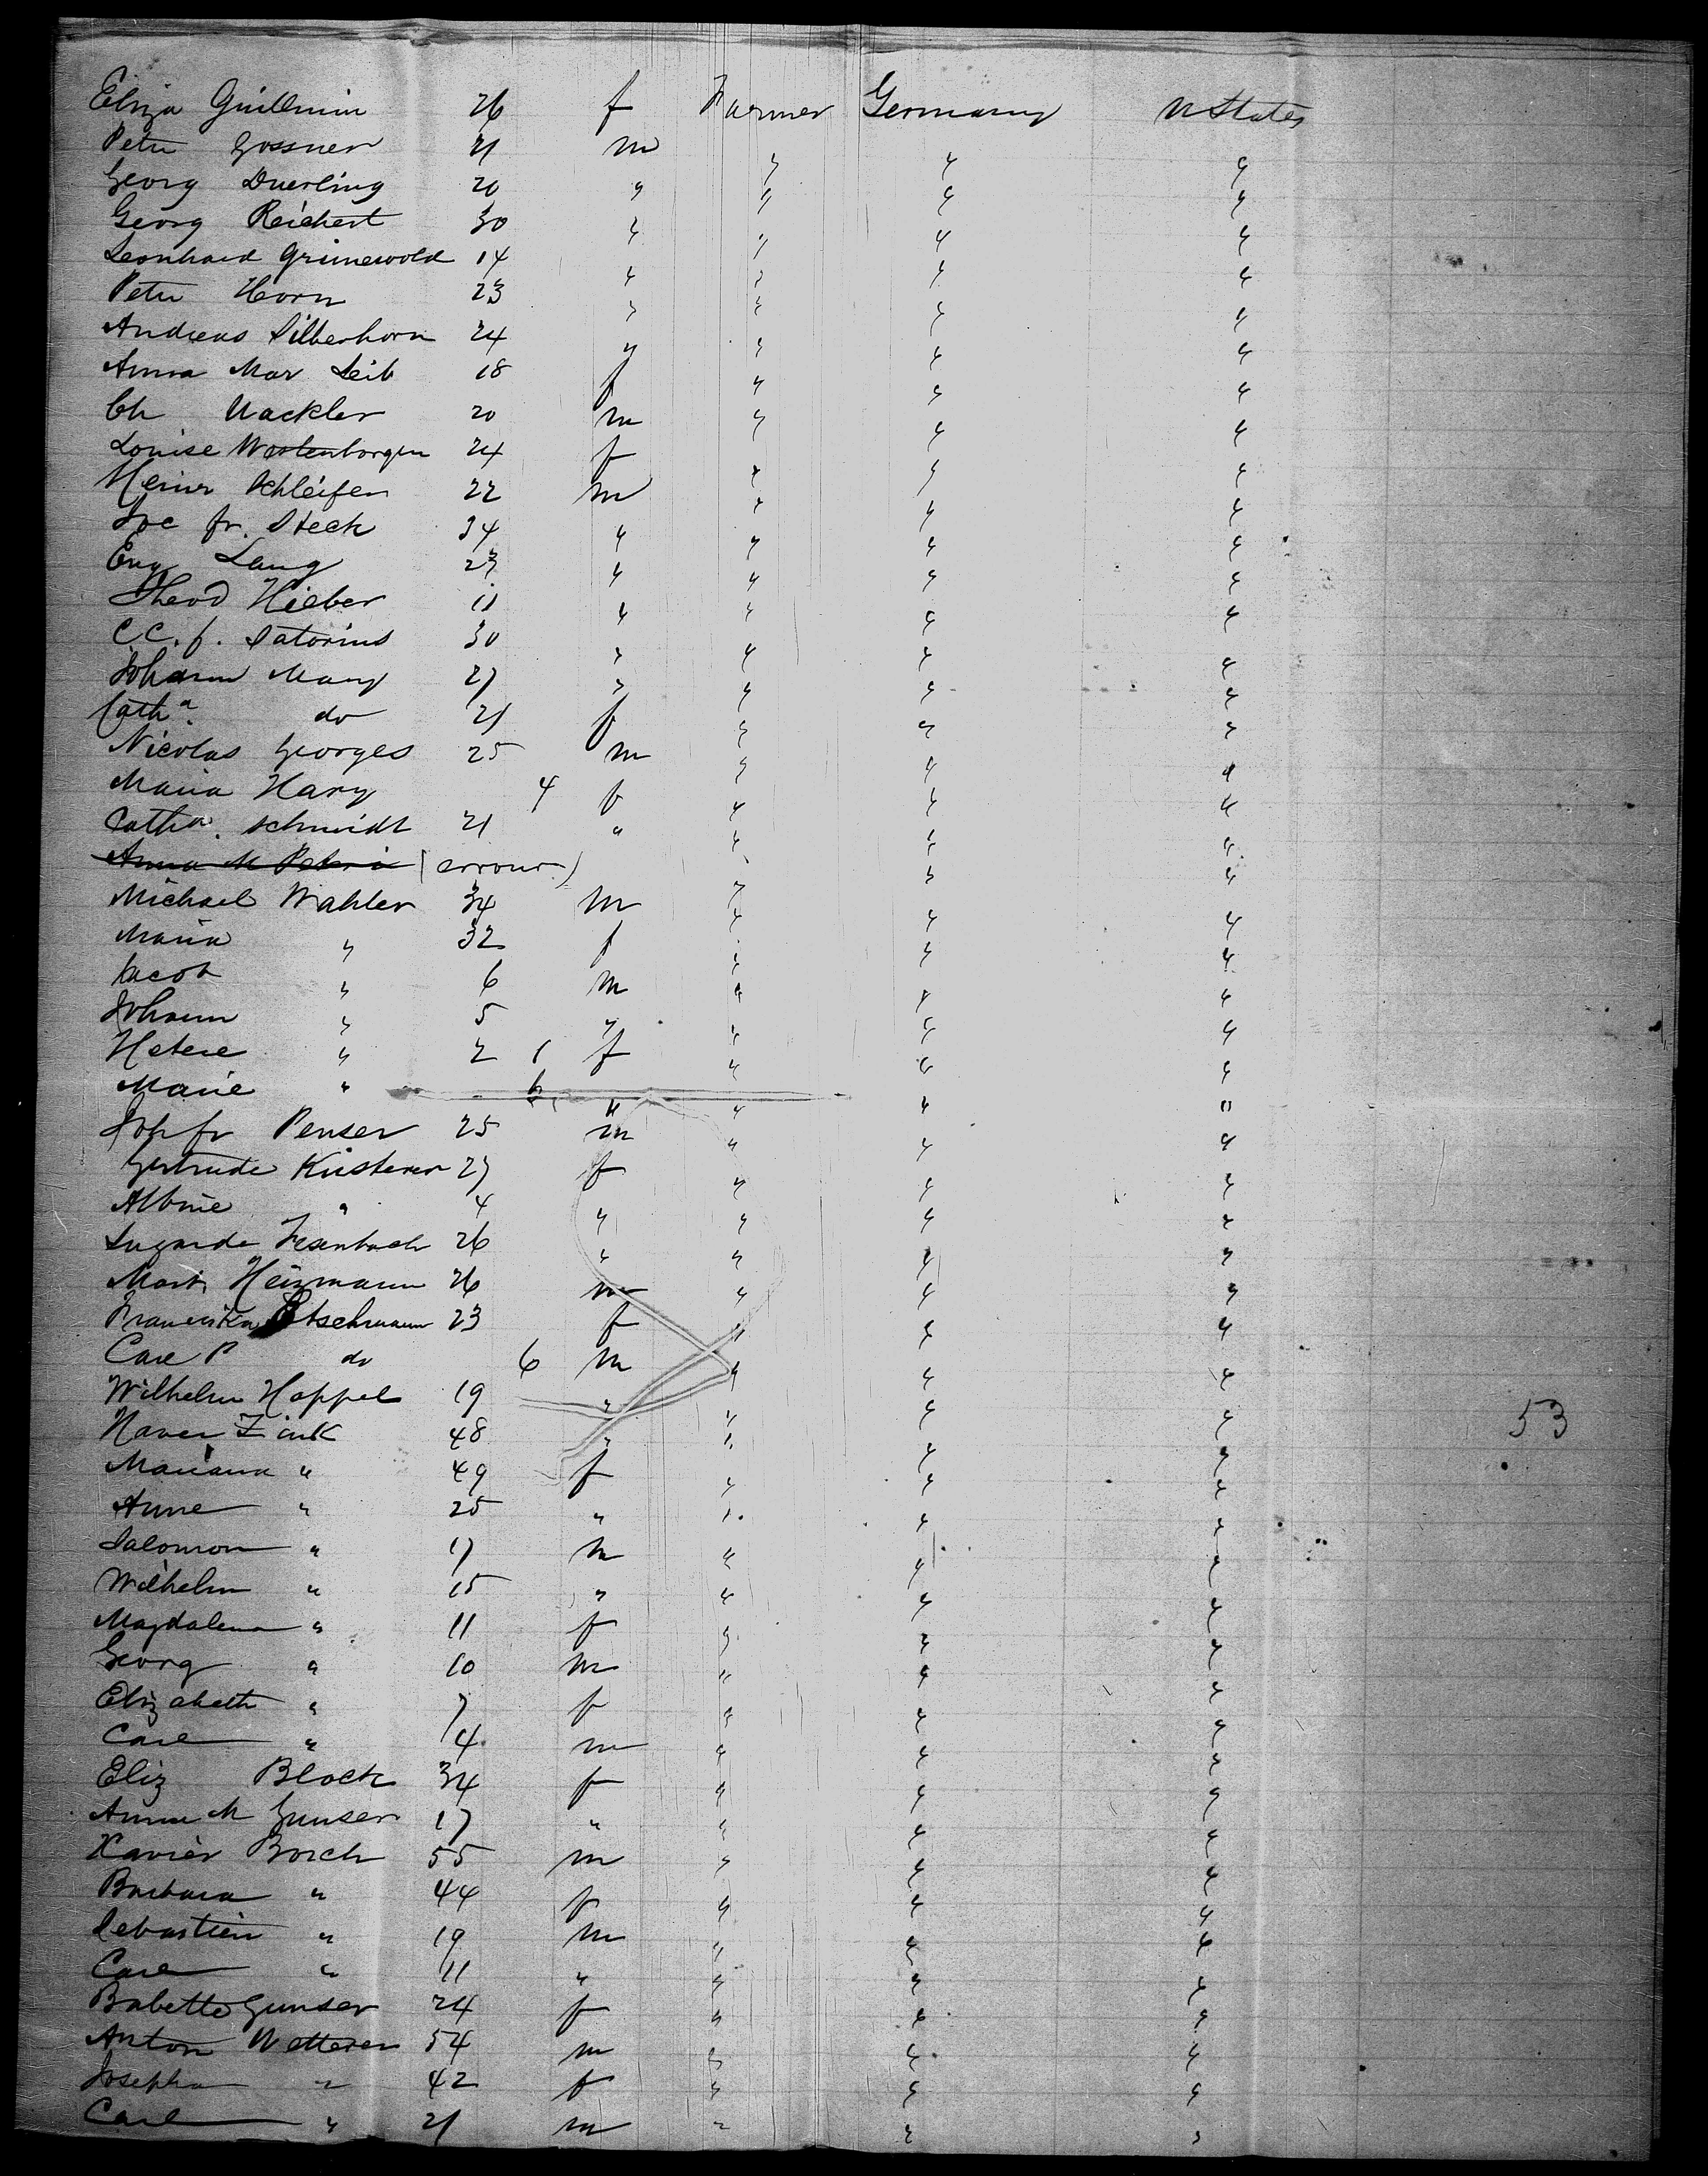 Eliza Guillmin 26 f Farmer Germany U States
Peter Gossner 21 m " " "
Georg Duerling 20 " " " "
Georg Reichert 30 " " " "
Leonhard Grünewold 14 " " " "
Peter Horn 23 " " " "
Andreas Silberhorn 24 " " " "
Anna Mar Leib 18 f " " "
Ch Nackler 20 m " " "
Louise Westenborgen 24 f " " "
Heinr Schleifer 22 m " " "
Joe fr. Steck 34 " " " "
Eug Lang 23 " " " "
Theod Hieber 11 " " " "
C.C. f. Satorius 30 " " " "
Johann Many 27 " " " "
Cath a. do 21 f " " "
Nicolas Georges 25 m " " "
Maria Hary 4 f " " "
Catha. Schmidt 21 " " " "
Anna M Peteri (errour.) " " "
Michael Wahler 34 m " " "
Maria " 32 f " " "
Jacob " 6 m " " "
Johann " 5 " " " "
Helene " 2 1 f " " "
Marie " 6 " " " "
Joh fr Penser 25 m " " "
Gertrude Küsterer 27 f " " "
Albine " 4 " " " "
Lugarde Isenbach 26 " " " "
Mark Heizmann 26 m " " "
Franciska Etschmann 23 f " " "
Carl P do 6 m " " "
Wilhelm Hoppel 19 " " " "
Xaver Zink 48 " " " "
53
Mariana " 49 f " " "
Anne " 25 " " " "
Salomon " 17 m " " "
Wilhelm " 15 " " " "
Magdalena " 11 f " " "
Georg " 10 m " " "
Elizabeth " 7 f " " "
Carl " 4 m " " "
Eliz Block 34 f " " "
Anna M Gunser 17 " " " "
Xavier Borch 55 m " " "
Barbara " 44 f " " "
Sebastien " 19 m " " "
Carl " 11 " " " "
Babette Gunser 24 f " " "
Anton Wetterer 54 m " " "
Josepha " 42 f " " "
Carl " 21 m " " "